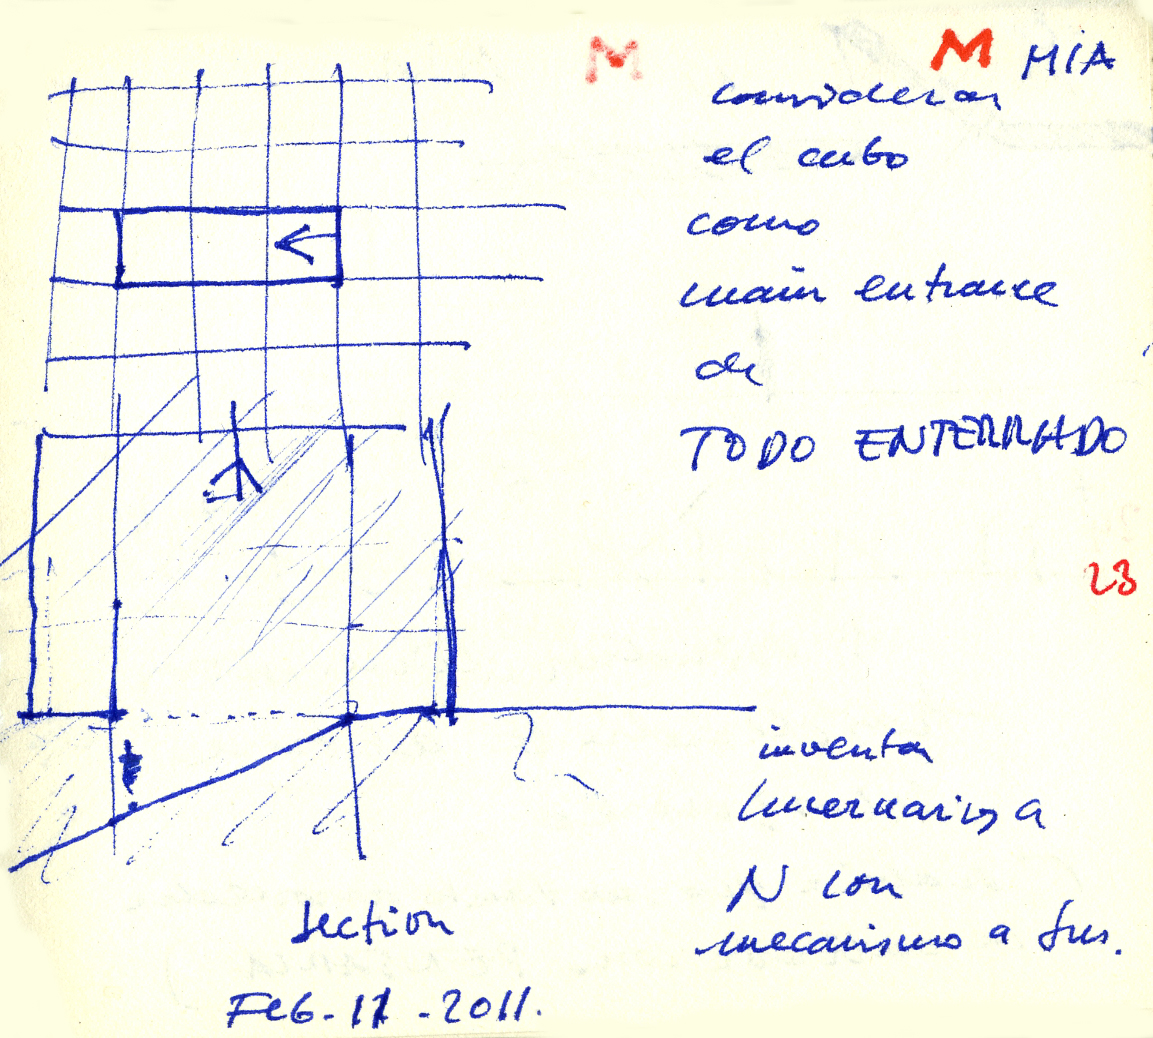 M
M MIA
considerar
el cubo
como
main entrance
de
TODO ENTERRADO
23
inventar
lucernarios a
N con
mecanismo a Sur.
Section
FEB-11-2011.